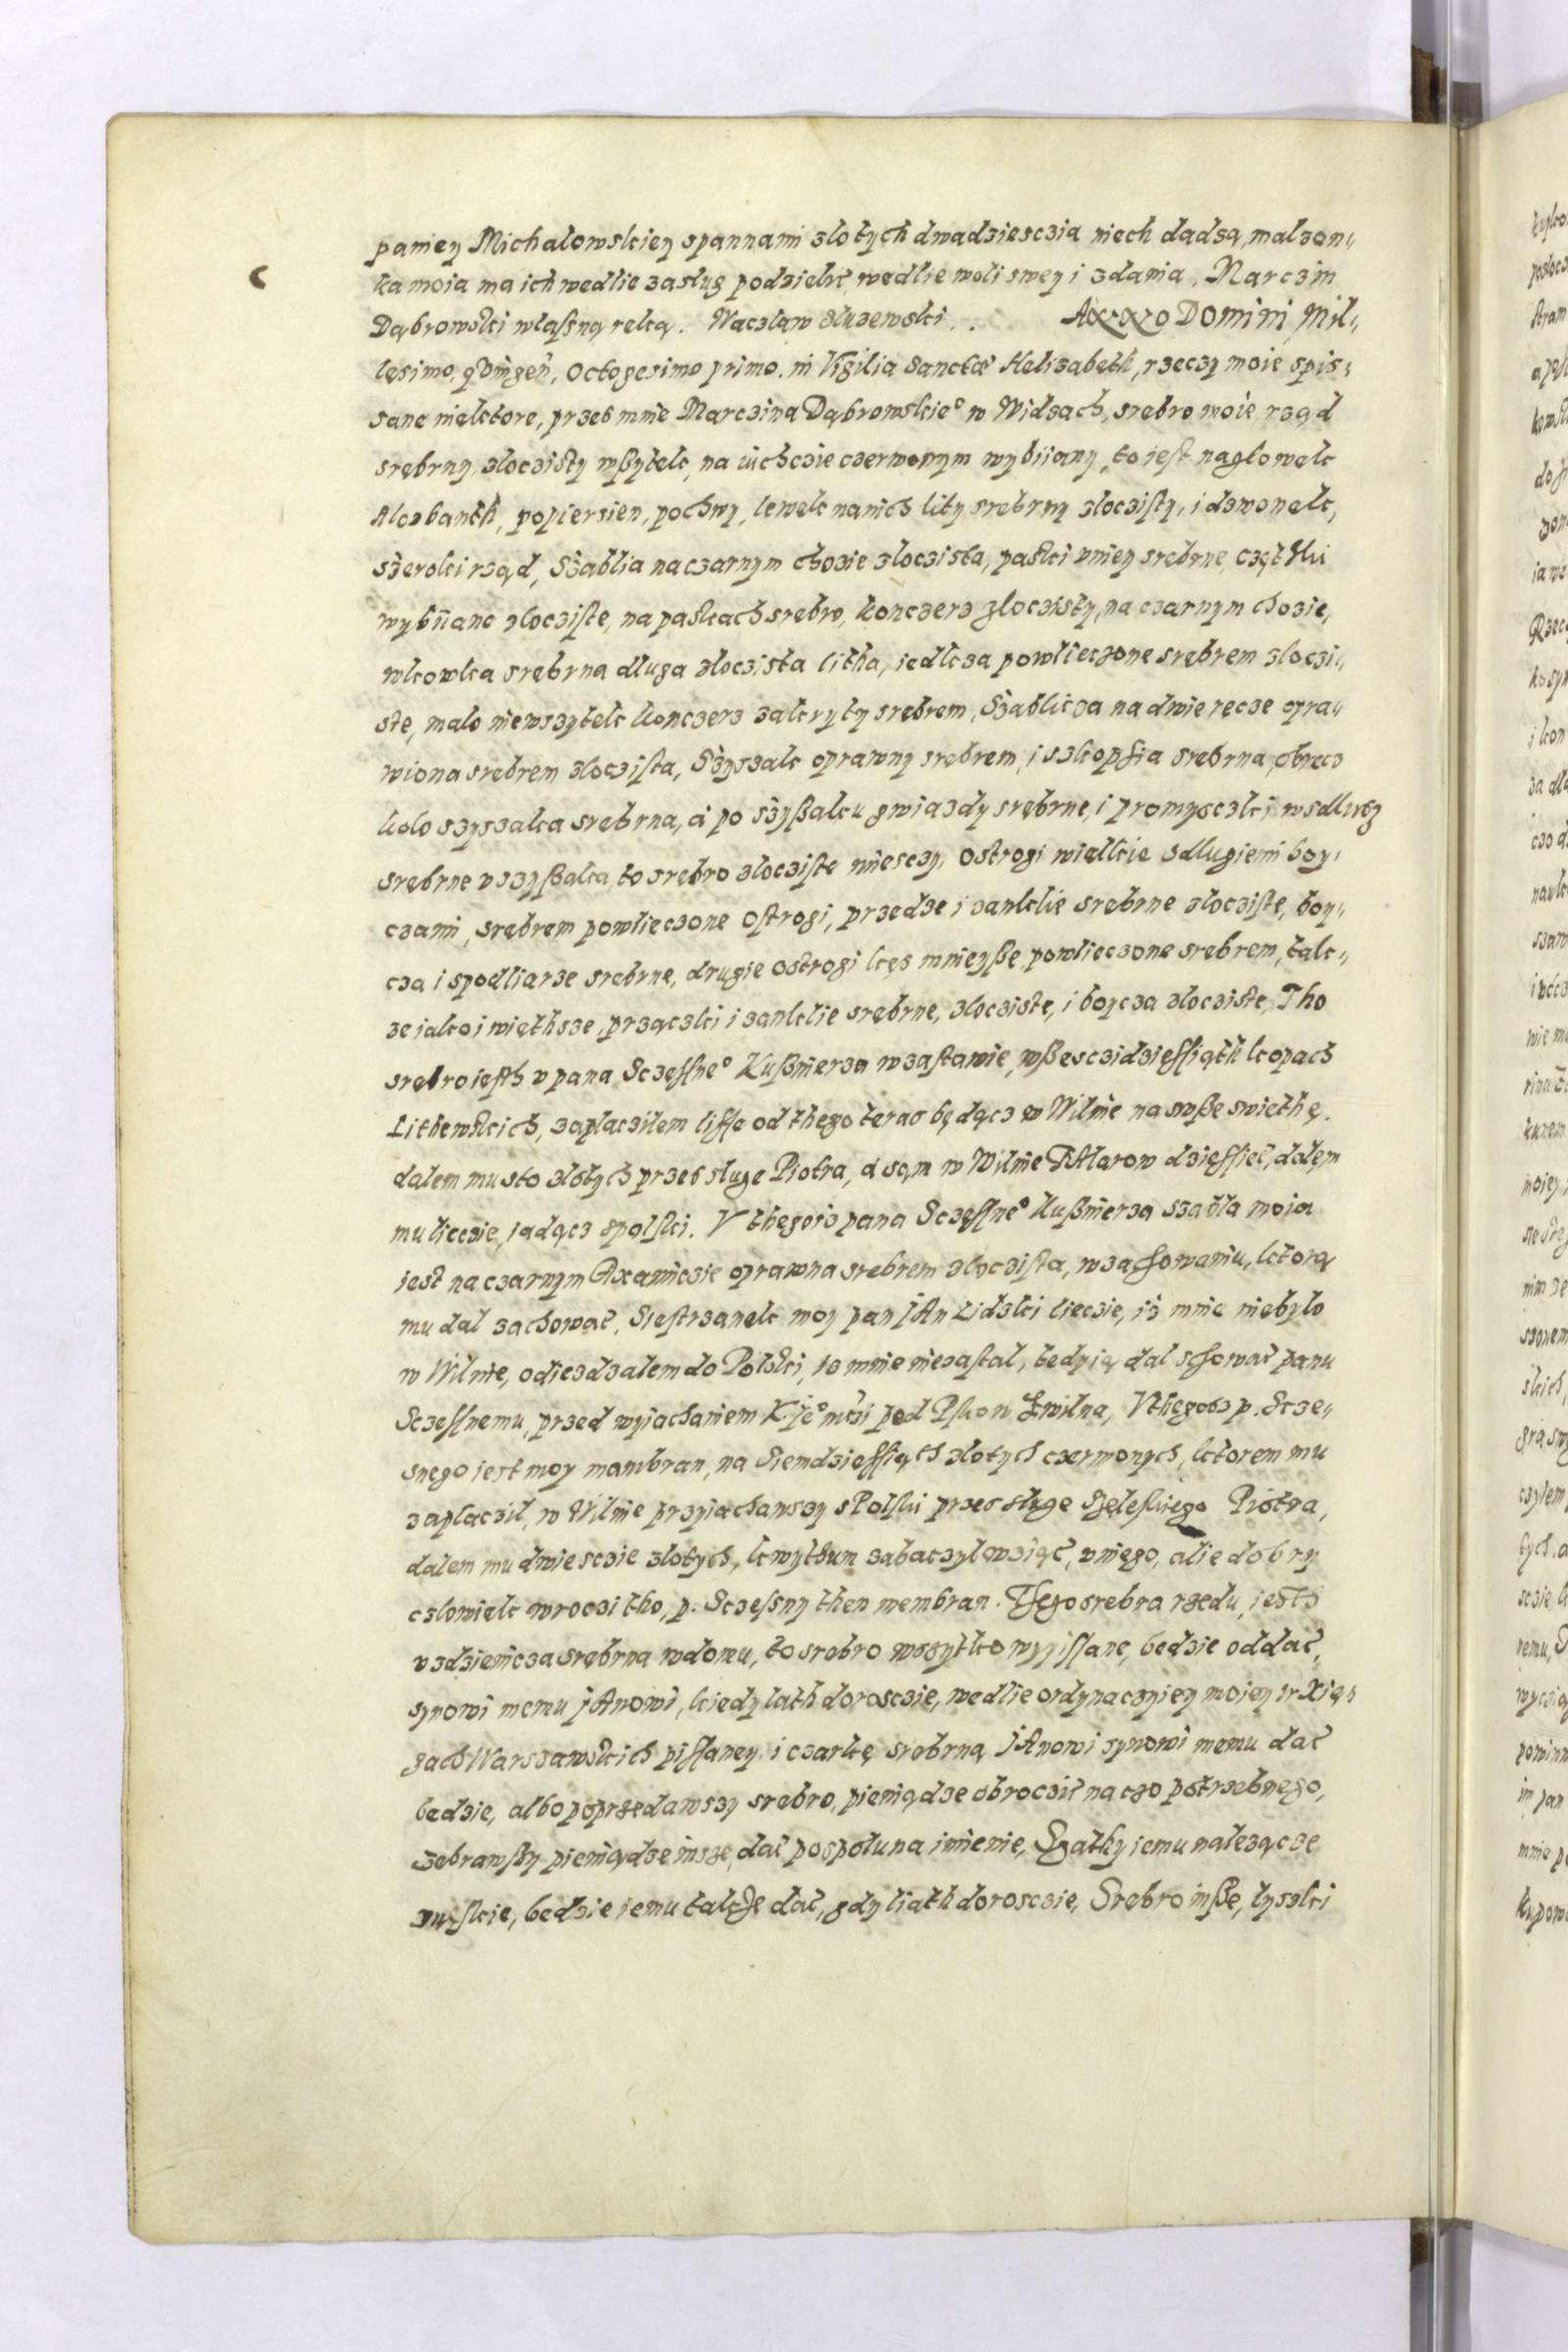 paniey Michalowskiey spannami zlotych dwadziesczia niech dadzą, malzon„
ka moia ma ich wedlie zaslug podzielić, wedlie woli swey i zdania. Marczin
Dąbrowski wlaſną reką. Waczlaw Sluzewski.. Anno Domini Mil„
lęsimo, qDingeñ, Octogesimo primo. in Vigilia Sanctæ Helizabeth, rzeczy moie spis„
sane niektore, przes mnie Marczina Dąbrowskie° w Widzach, srebro moie rząd
srębrny zloczisty wßytek, na iuchczie czerwonym wybiiany, to jest naglowek
Alczbanth, popiersien, pochwy, lewek na nich lity srebrny zloczisty, i dzwonek,
szeroki rząd, Szablia na czarnym chozie zloczista, paski v niey srebrne, czętkii
wybiiane zlocziste, na paskach srebro, konczerz zloczisty, na czarnym chozie,
wkowka srębrna dluga zloczista litha, iedlcza powlieczone srębrem zloczi„
ste, malo niewszytek konczerz zakryty srebrem, Szablicza na dwie ręcze opra„
wiona srebrem zloczista, Szyszak oprawny srebrem, i szkopfia srebrna, obręcz
kolo szyszaka srebrna, á po szyßaku gwiazdy srębrne, i promyczki wsdlusz
srębrne v szyßaka, to srębro zloczistę mieszy, Ostrogi wielkie sdlugiemi boy„
czami, srębrem powlieczone ostrogi, przedze i zanklie srebrne zlocziste, boy„
cza i spodliarze srebrne, drugie ostrogi kęs mnieyßę powlieczone srebrem, tak„
ze iako i więthsze, przączki i zanklie srębrne, zlocziste, i boycza zlocziste, Tho
srębro iesth v pana Sczęſſne° Kußnierza w zastawie, wßesczidzieſſiąth kopach
Lithewskich, zaplaczilem liſſę od thego teraz będącz w Wilnie na swße swiethę.
dalem mu sto zlotych przes sluge Piotra, á sąm w Wilnie TAlarow dzieſſieć, dalęm
mu liecie, iadącz spolſki. V thegoiz pana Sczęſſne° Kußnierza szabla moia
jest na czarnym Axamiczie oprawna srebrem zloczista, w zachowaniu, ktorą
mu dal zachować, Siestrzanek moy pan jAn Lidzki lieczie, iż mnie niebylo
w Wilnie, odiezdzalem do Polski, to mnie niezastal, tedy ią dal schować panu
Sczeſſnemu, przed wyiachaniem K. Je° mści pod Pſkow zWilna, V thegoss p. Scze„
snego jest moy mambran, na Siemdzieſſiąth zlotych czerwonych, ktorem mu
zaplaczil, w Wilnie przyiachawszy s Polſki przes sluge Szeleſkiego Piotra,
dalem mu dwiesczie zlotych, kwythun zabaczylem wziąć, v niego, alie dobry
czlowiek wroczi tho, p. Sczeſsny then membran. Thego srebra rzędu, jesth
vzdzienicza srębrna w domu, to srebro wszytko wypiſſane, będzie oddać,
synowi memu jAnowi, kiedy lath dorosczie, wedlie ordynacznyey moiey w Xię„
gach Warszawskich piſſaney, i czarkę srebrną jAnowi synowi memu dać
będzie, albo poprzedawszy srebro, pieniądze obrocić na czo potrzebnego,
Zebrawſzy pieniądze insze, dać pospolu na imienie, Szatky iemu nalezącze
muskie, będzie iemu także dać, gdy liath dorosczie, Srębro inße, lyszki